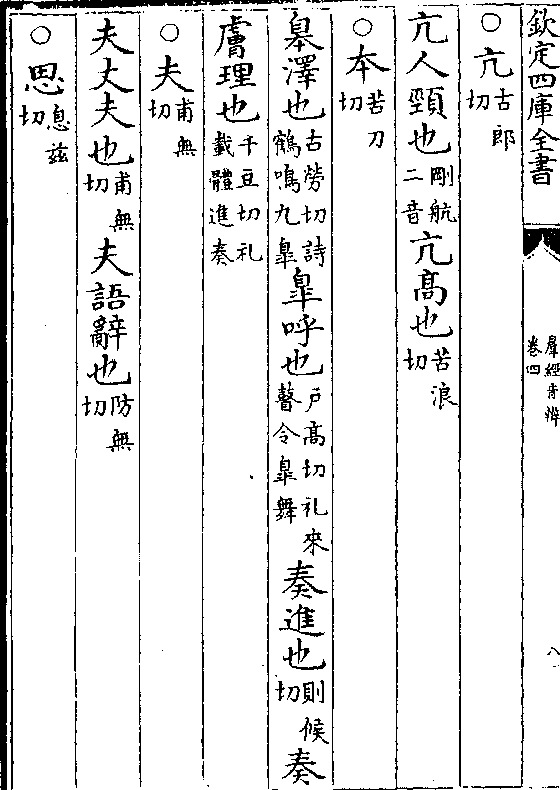 欽定四庫全書
羣經音辨
卷四
八
○亢古郎切
亢人頸也剛航二音亢高也苦浪切
○夲苦刀切
皋澤也古勞切詩鶴鳴九臯臯呼也戶高切礼來瞽令臯舞奏進也則候切奏
膚理也千豆切礼載體進奏
○夫甫無切
夫丈夫也甫無切夫語辭也防無切
○思息兹切